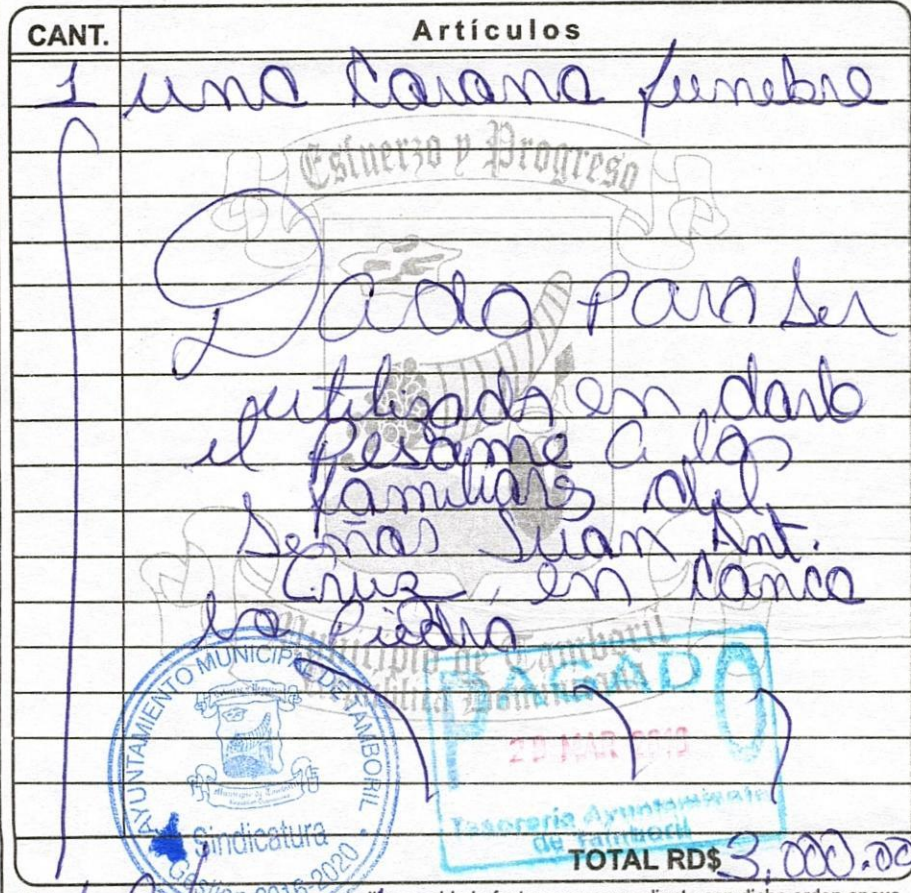 CANT. Artículos
1 una Corona funebre
Esfuerzo y Progreso
Dado para ser
utilizada en darle
el pesame a los
familiares del
Señor Juan Ant.
Cruz, en Canca
la Piedra
Municipio de Tamboril
República Dominicana
AYUNTAMIENTO MUNICIPAL DE TAMBORIL
Sindicatura
2016-2020
PAGADO
MAR
Tesoreria Ayuntamiento
de Tamboril
TOTAL RD$ 3,000.00